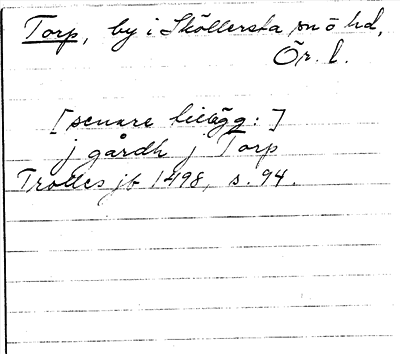 Torp, by i Sköllersta sn o hd,
Ör. l.
[senare tillägg:]
j gårdh j Torp
Trolles jb 1498, s. 94.